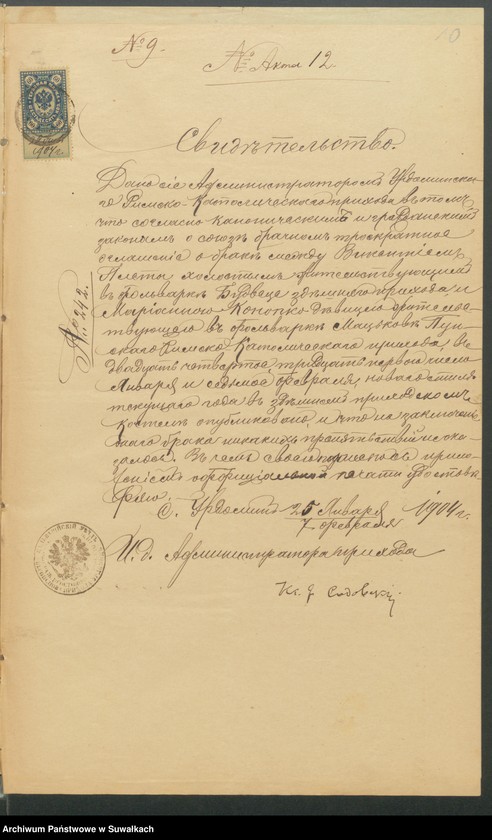 № 9.
№ Акта 12.
10
1904 г.
Свидѣтельство.
Дано сіе Администраторомъ Урдоминска-
го Римско-Католическаго прихода въ томъ,
что согласно каноническимъ и гражданскимъ
законамъ о союзѣ брачномъ троекратное
оглашеніе о бракѣ между Викентіемъ
холостымъ жительствующимъ
въ фольваркѣ здѣшняго прихода и
Маріанною Конопко дѣвицею жительс-
твующею въ фольваркѣ Мацьковъ Пун-
скаго Римско Католическаго прихода, въ
двадцать четвертое тридцать первое число
Января и седьмое февраля новаго стиля
текущаго года въ здѣшнемъ приходскомъ
костелѣ опубликовано и что на заключе-
наго брака никакихъ препятствій не ока-
залось. Въ чемъ своимъ подписомъ и прило-
женіемъ оффиціальной печати удостовѣ-
ряю.
С. Урдоминъ 25 Января 1904 г.
7 февраля
№ 242.
И. д. Администратора прихода
Кс. Садовскій
Archiwum Państwowe w Suwałkach